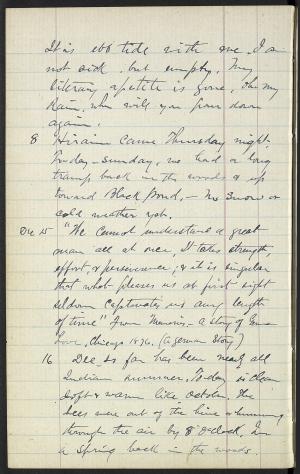 It is ebb tide with me. I am
not sick, but empty. My
literary apetite is gone, Oh my
Rain, when will you pour down
again.
8 Hiram came Thursday night;
Friday - Sunday, we had a long
tramp back in the woods & up
toward Black Pond, - No snow or
cold weather yet.
Dec 15 "We cannot understand a great
man all at once, It takes strength,
effort, & perseverance; & it is singular
that what pleases us at first sight
seldom captivates us any length
of time" From Memoirs - a story of
Love, Chicago 1876. (A German Story)
16 Dec, so far has been nearly all
Indian summer, To-day is clear
soft & warm like October. The
bees were out of the hive & humming
through the air by 8 o'clock,
a spring back in the woods.